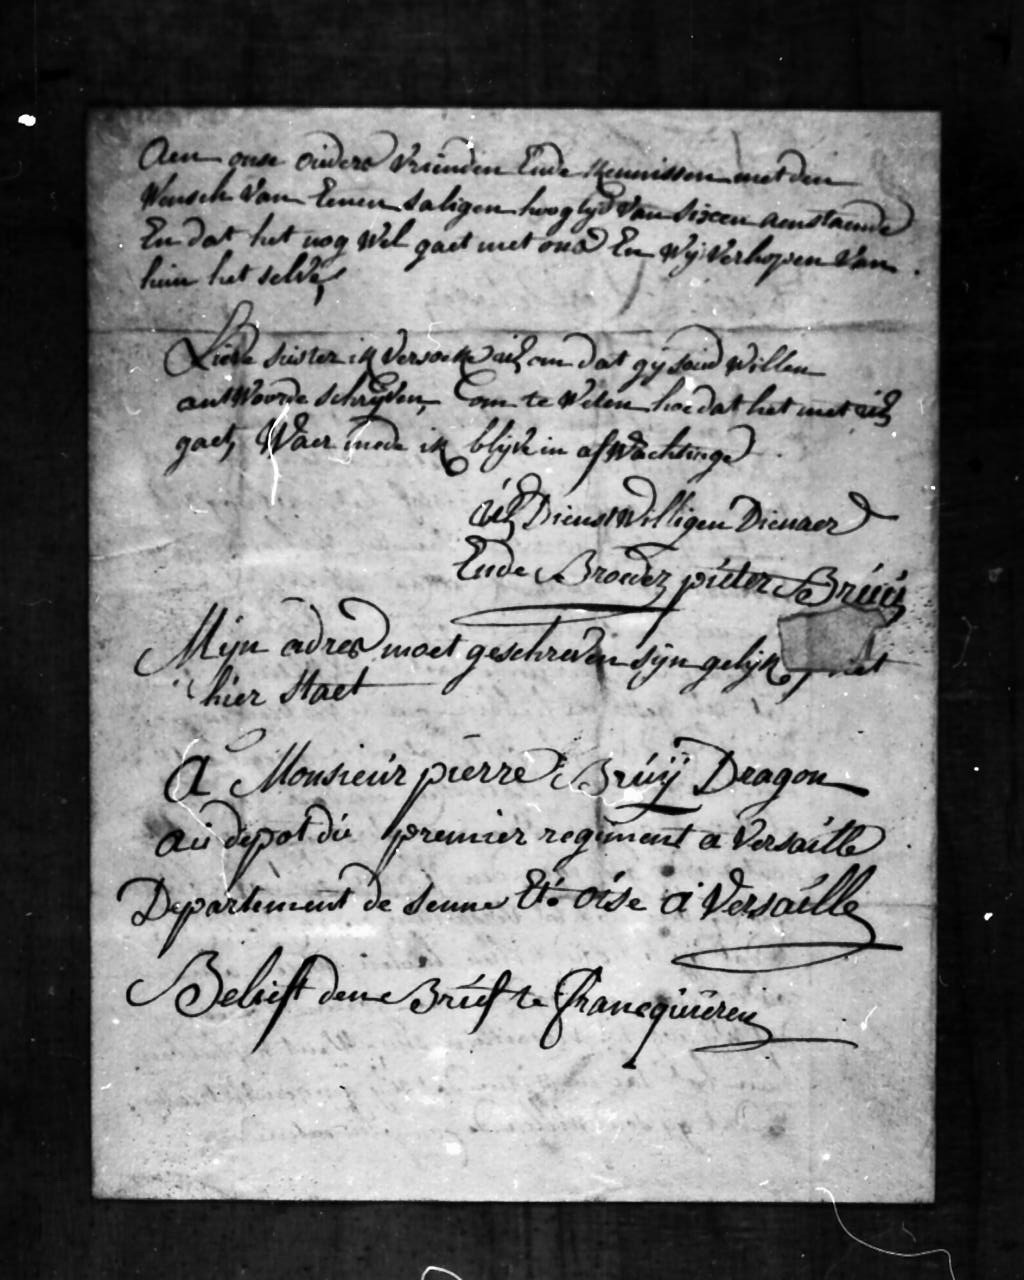 Aen onse ouders vrienden Ende Kennissen met den
Wensch van Eenen saligen hooglyd van sixsen aenstaende
En dat het nog wel gaet met ons En Wy verhopen van
hun het selve,
Lieve suster ik versoeke uEd om dat gy soud willen
antwoorde schryven, om te weten hoe dat het met uEd
gaet, Waer mede ik blyve in afwachtinge
uEd Dienstwilligen Dienaer
Ende Broeder pieter Bruÿ
Mijn adres moet geschreven sijn gelijk het
hier staet
A Monsieur pierre Bruÿ Dragon
au depot du premier regiment a versaille
Departement de senne Et oise a versaille
Belieft den Brief te francquieren